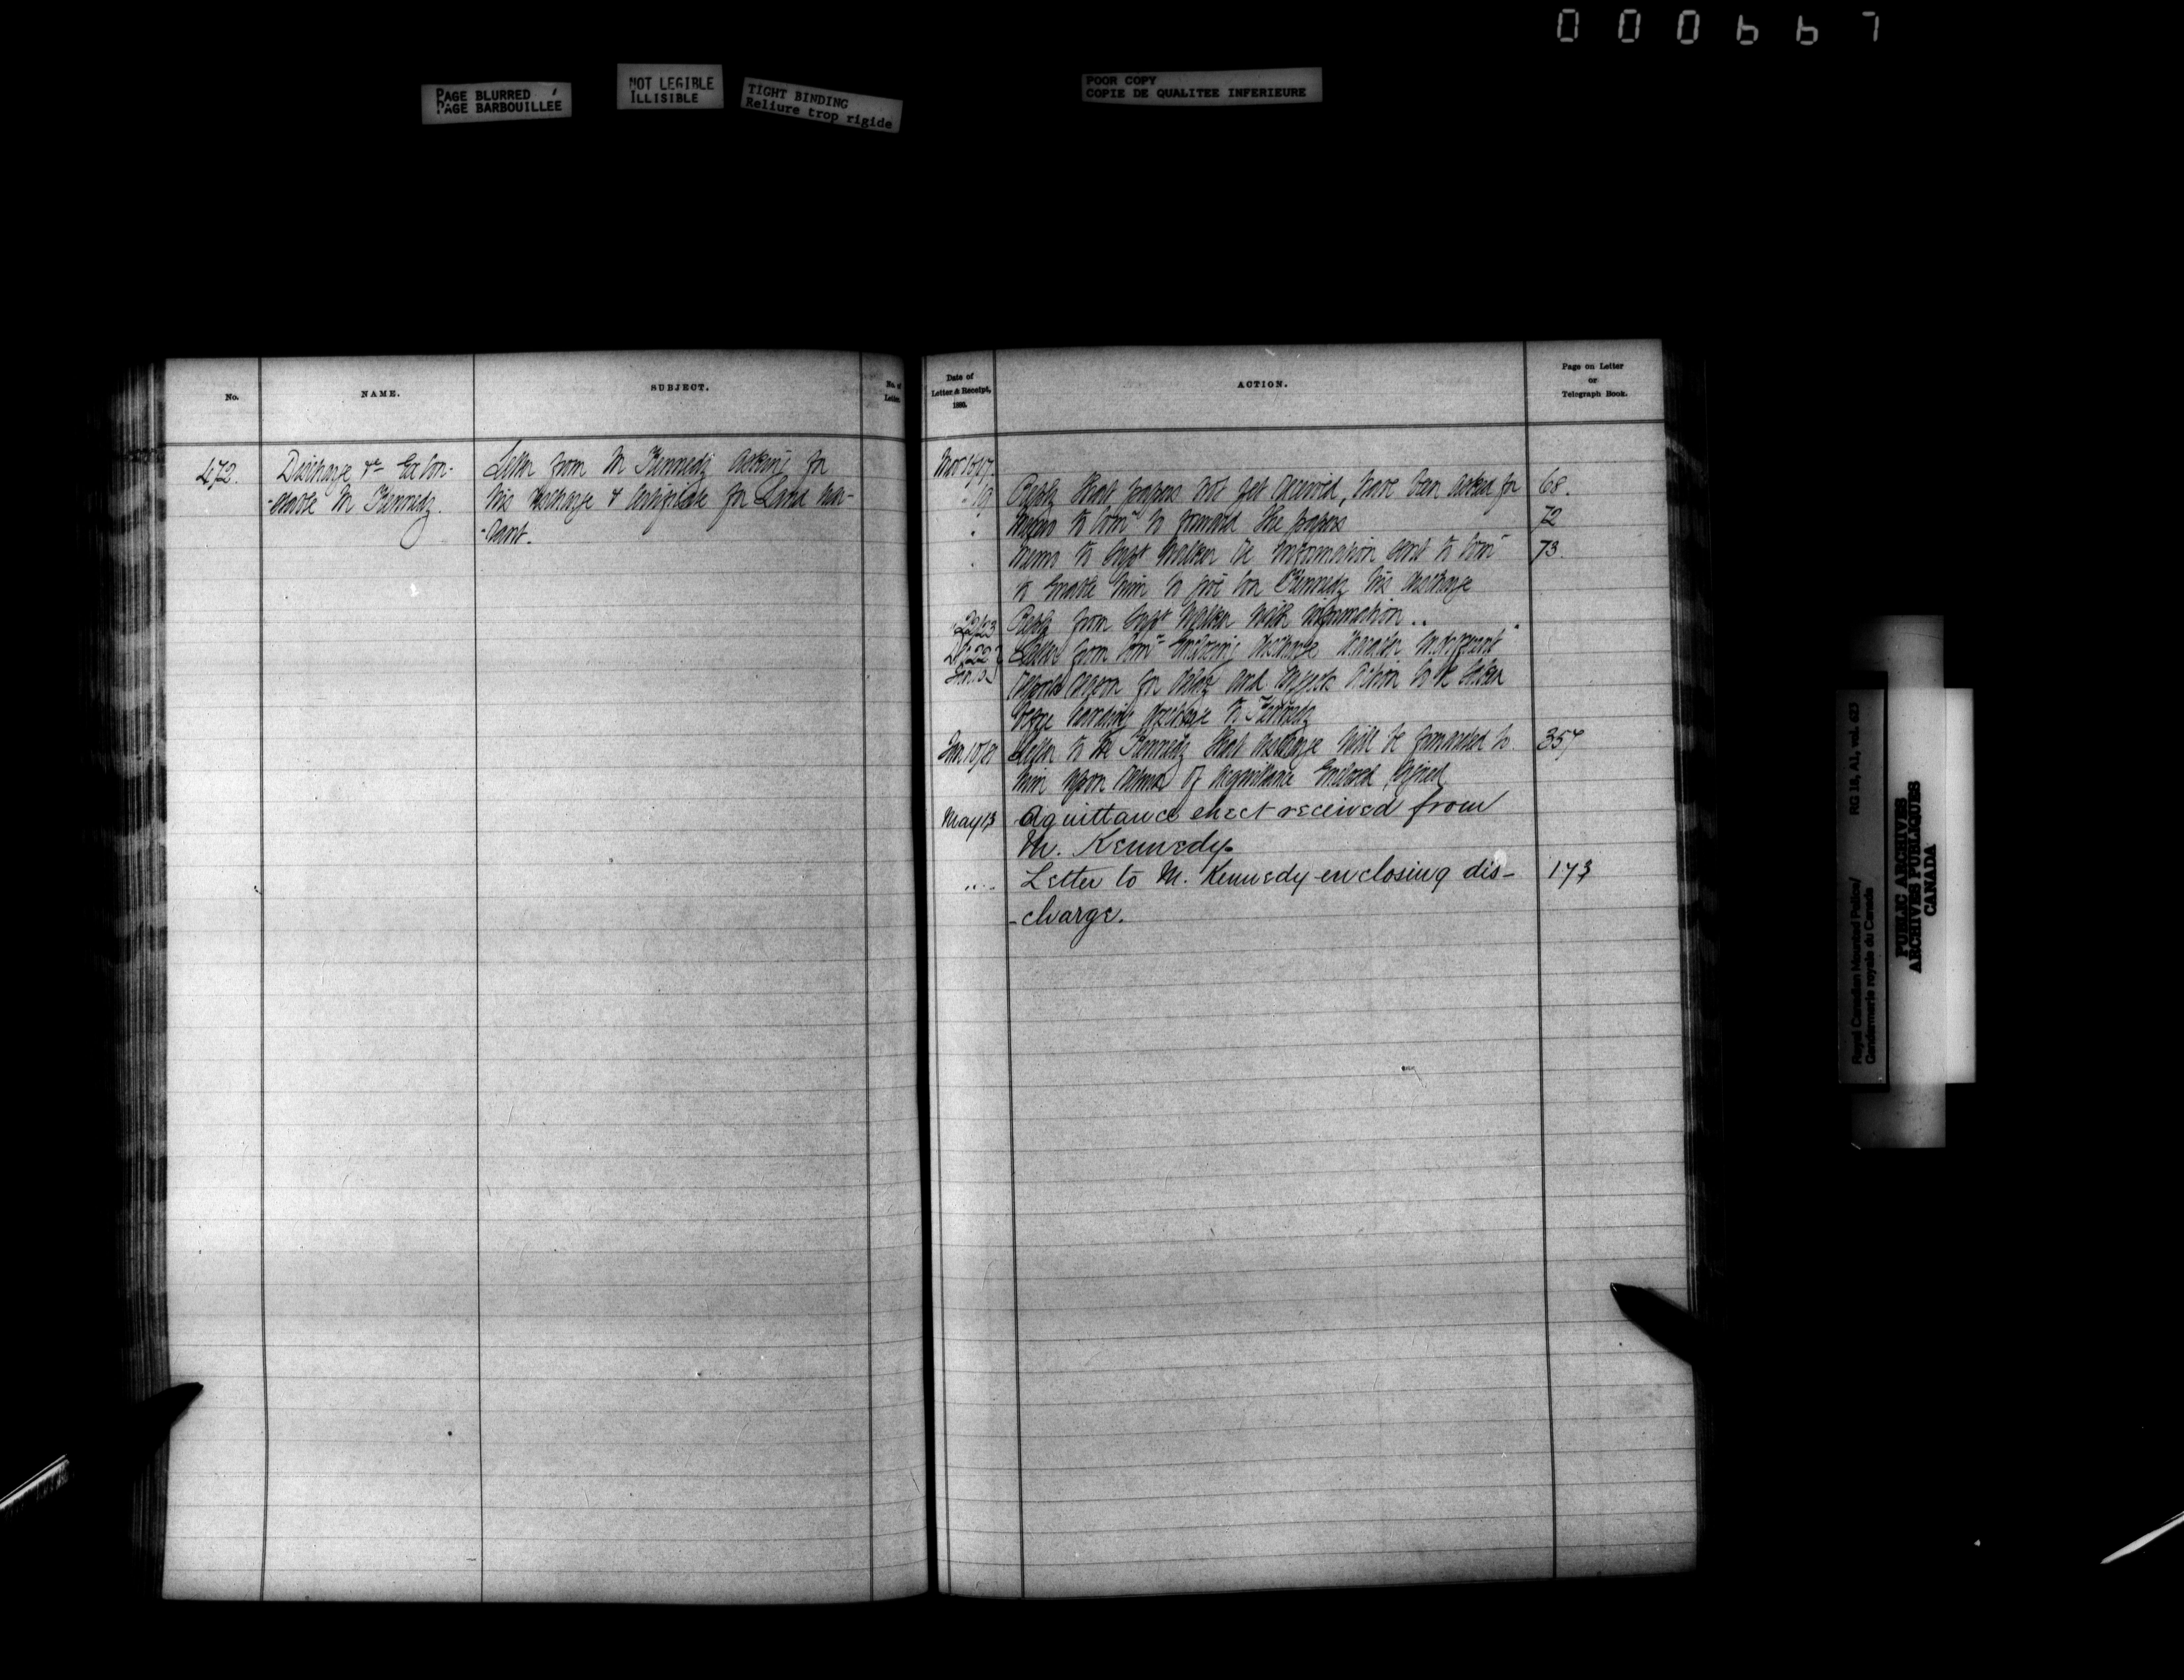 000667
PAGE BLURRED
PAGE BARBOUILLEE
NOT LEGIBLE
ILLISIBLE
TIGHT BINDING
Reliure trop rigide
POOR COPY
COPIE DE QUALITEE INFERIEURE
No.
NAME.
SUBJECT.
No. of
Letter.
472.
Discharge &c Ex Con-
-stable M Kennedy.
Letter from M Kennedy asking for
his discharge & Certificate for Land War-
-rant.
Date of
Letter & Receipt,
188
ACTION.
Page on Letter
or
Telegraph Book.
Nov 15/17
" 19 Reply that papers not yet received, have been asked for 68.
" Memo to Comr to forward the papers 72
" Memo to Supt Walker re information sent to Comr 73
to enable him to give Con Kennedy his discharge
" 22/23 Reply from Supt Walker with information ..
Letter from Comr enclosing discharge
reports reason for delay and action to be taken
before handing discharge to Kennedy
Jan 10/81 Letter to Kennedy that discharge will be forwarded to 357
him upon return of acquittance enclosed signed
May 13 Aquittance sheet received from
M. Kennedy.
.... Letter to M. Kennedy enclosing dis- 173
-charge.
Royal Canadian Mounted Police/
Gendarmerie royale du Canada
RG 18, A1, vol. 623
PUBLIC ARCHIVES
ARCHIVES PUBLIQUES
CANADA